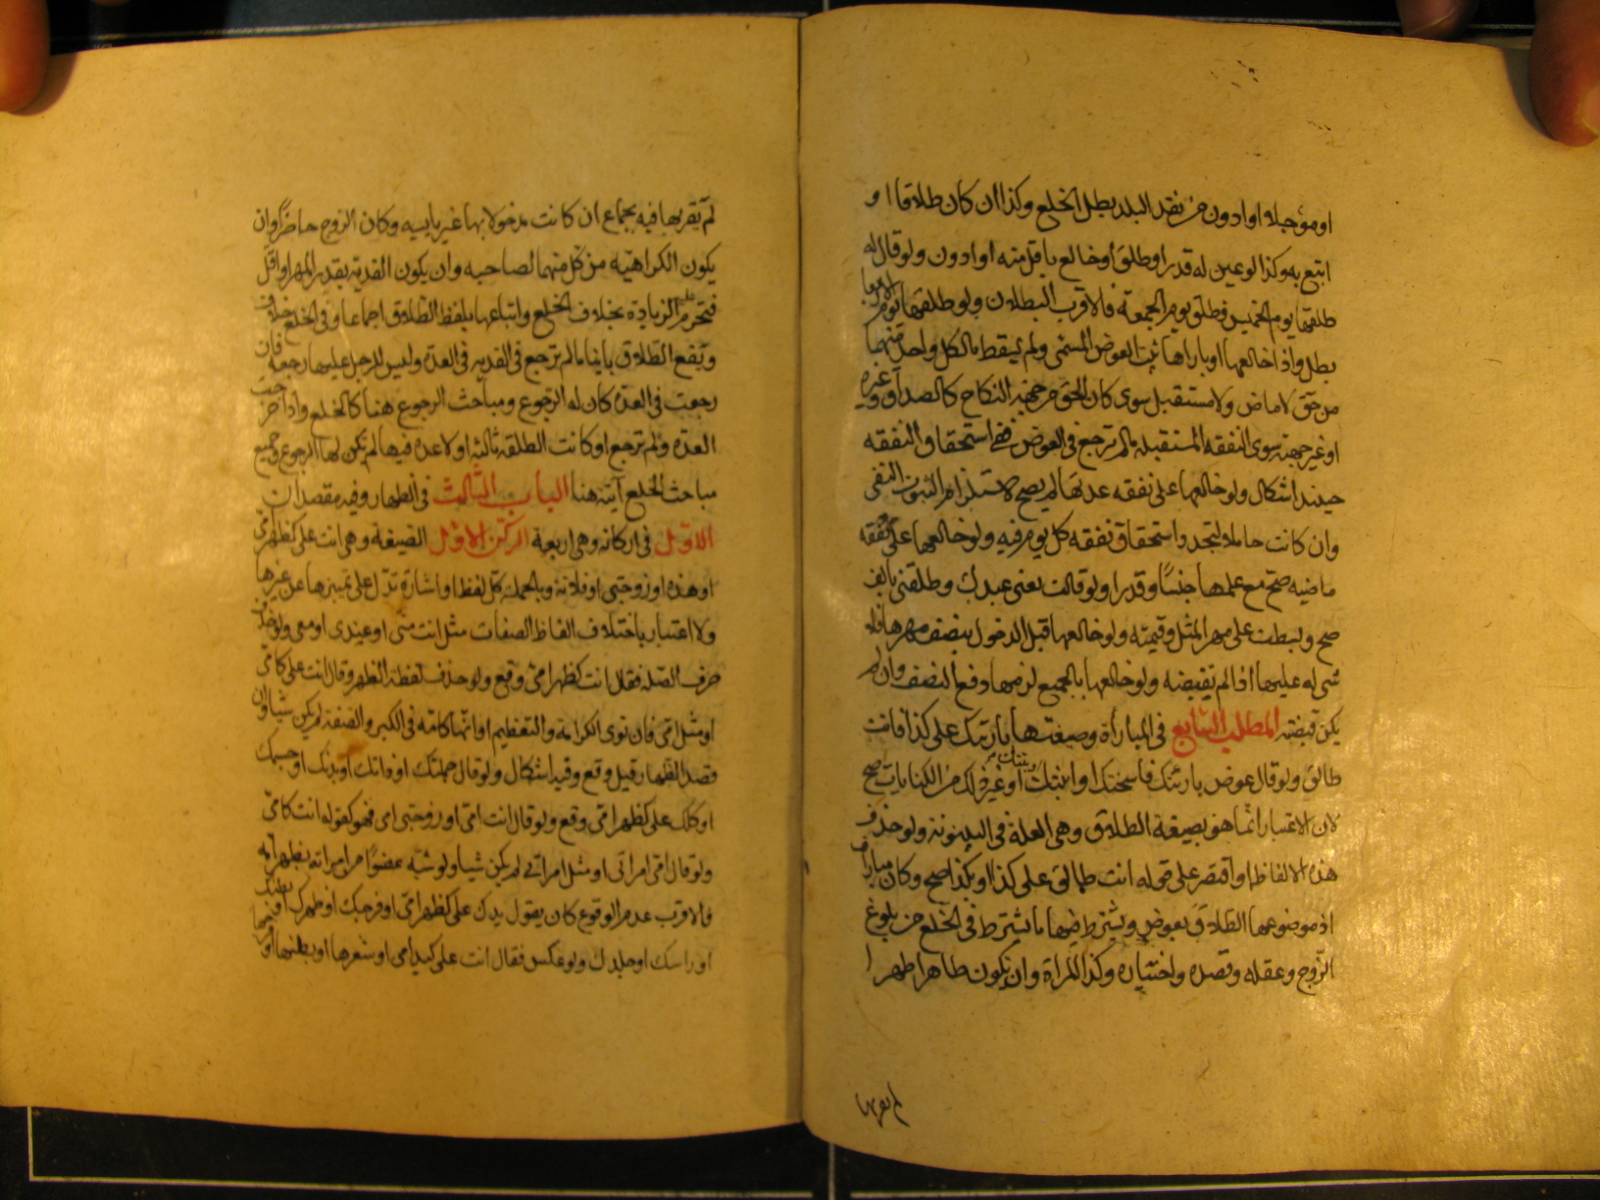 او مؤجلا او ادون من نقد البلد بطل الخلع وكذا ان كان طلاقا او
اتبع به وكذا لو عين له قدرا وطلق او خالع باقل منه او ادون ولو قال له
طلقها يوم الخميس فطلق يوم الجمعة فالاقرب البطلان ولو طلقها يوم الاربعا
بطل واذا خالعها او باراها ثبت العوض المسمى ولم يسقط مالكل واحد منهما
من حق لا ماض ولا مستقبل سوى كان الحق من جهة النكاح كالصداق او غيره
او غير جهته سوى النفقه المستقبله مالم ترجع في العوض ففي استحقاق النفقه
حينئذ اشكال ولو خالعها على نفقه عدتها لم يصح لاستلزام الثبوت النفي
وان كانت حاملا لتجدد استحقاق نفقه كل يوم فيه ولو خالعها على نفقه
ماضيه صح مع علمها جنسا وقدرا ولو قالت بعني عبدك وطلقني بالف
صح وبسطت على مهر المثل وقيمته ولو خالعها قبل الدخول بنصف مهرها فلا
شي له عليها اذا لم تقبضه ولو خالعها بالجميع لزمها دفع النصف وان لم
يكن قبضته المطلب الرابع في المباراة وصيغتها بارئتك على كذا فانت
طالق ولو قال عوض بارئتك فاسختك او ابنتك او بتتك او غير ذلك من الكنايات صح
لان الاعتبار انما هو بصيغة الطلاق وهي العلة في البينونة ولو حذف
هذه الالفاظ واقتصر على قوله انت طالق على كذا او بكذا صح وكان مباراة
اذ موضوعها الطلاق بعوض ويشترط فيها ما يشترط في الخلع من بلوغ
الزوج وعقله وقصده واختياره وكذا المراة وان تكون طاهرا طهرا
لم يقربها
لم يقربها فيه بجماع ان كانت مدخولا بها غير يايسه وكان الزوج حاضرا وان
يكون الكراهيه من كل منهما لصاحبه وان يكون الفدية بقدر المهر او اقل
فتحرم عليه الزيادة بخلاف الخلع واتباعها بلفظ الطلاق اجماعا وفي الخلع خلاف
ويقع الطلاق باينا مالم ترجع في الفديه في العدة وليس للرجل عليها رجعه فان
رجعت في العدة كان له الرجوع ومباحث الرجوع هنا كالخلع واذا خرجت
العدة ولم ترجع او كانت الطلقه ثالثه او لا عده فيها لم يكن لها الرجوع وجميع
مباحث الخلع آتية هنا الباب الثالث في الظهار وفيه مقصدان
الاول في اركانه وهي اربعة الركن الاول الصيغة وهي انت على كظهر امي
او هذه او زوجتي او فلانة وبالجملة كل لفظ او اشارة تدل على تميزها عن غيرها
ولا اعتبار باختلاف الفاظ الصفات مثل انت مني او عندي او معي ولو حذف
حرف الصله فقال انت كظهر امي وقع ولو حذف لفظة الظهر وقال انت على كامي
او مثل امي فان نوى الكرامة والتعظيم او انها كامه في الكبر والصفة لم يكن شيا وان
قصد الظهار قيل وقع وفيه اشكال ولو قال جملتك او ذاتك او بدنك او جسمك
او كلك على كظهر امي وقع ولو قال انت امي او زوجتي امي فهو كقوله انت كامي
ولو قال امي امراتي او مثل امراتي لم يكن شيا ولو شبه عضوا من امراته بظهر امه
فالاقرب عدم الوقوع كان يقول يدك على كظهر امي او فرجك او ظهرك او بطنك
او راسك او جلدك ولو عكس فقال انت على كيد امي او شعرها او بطنها او